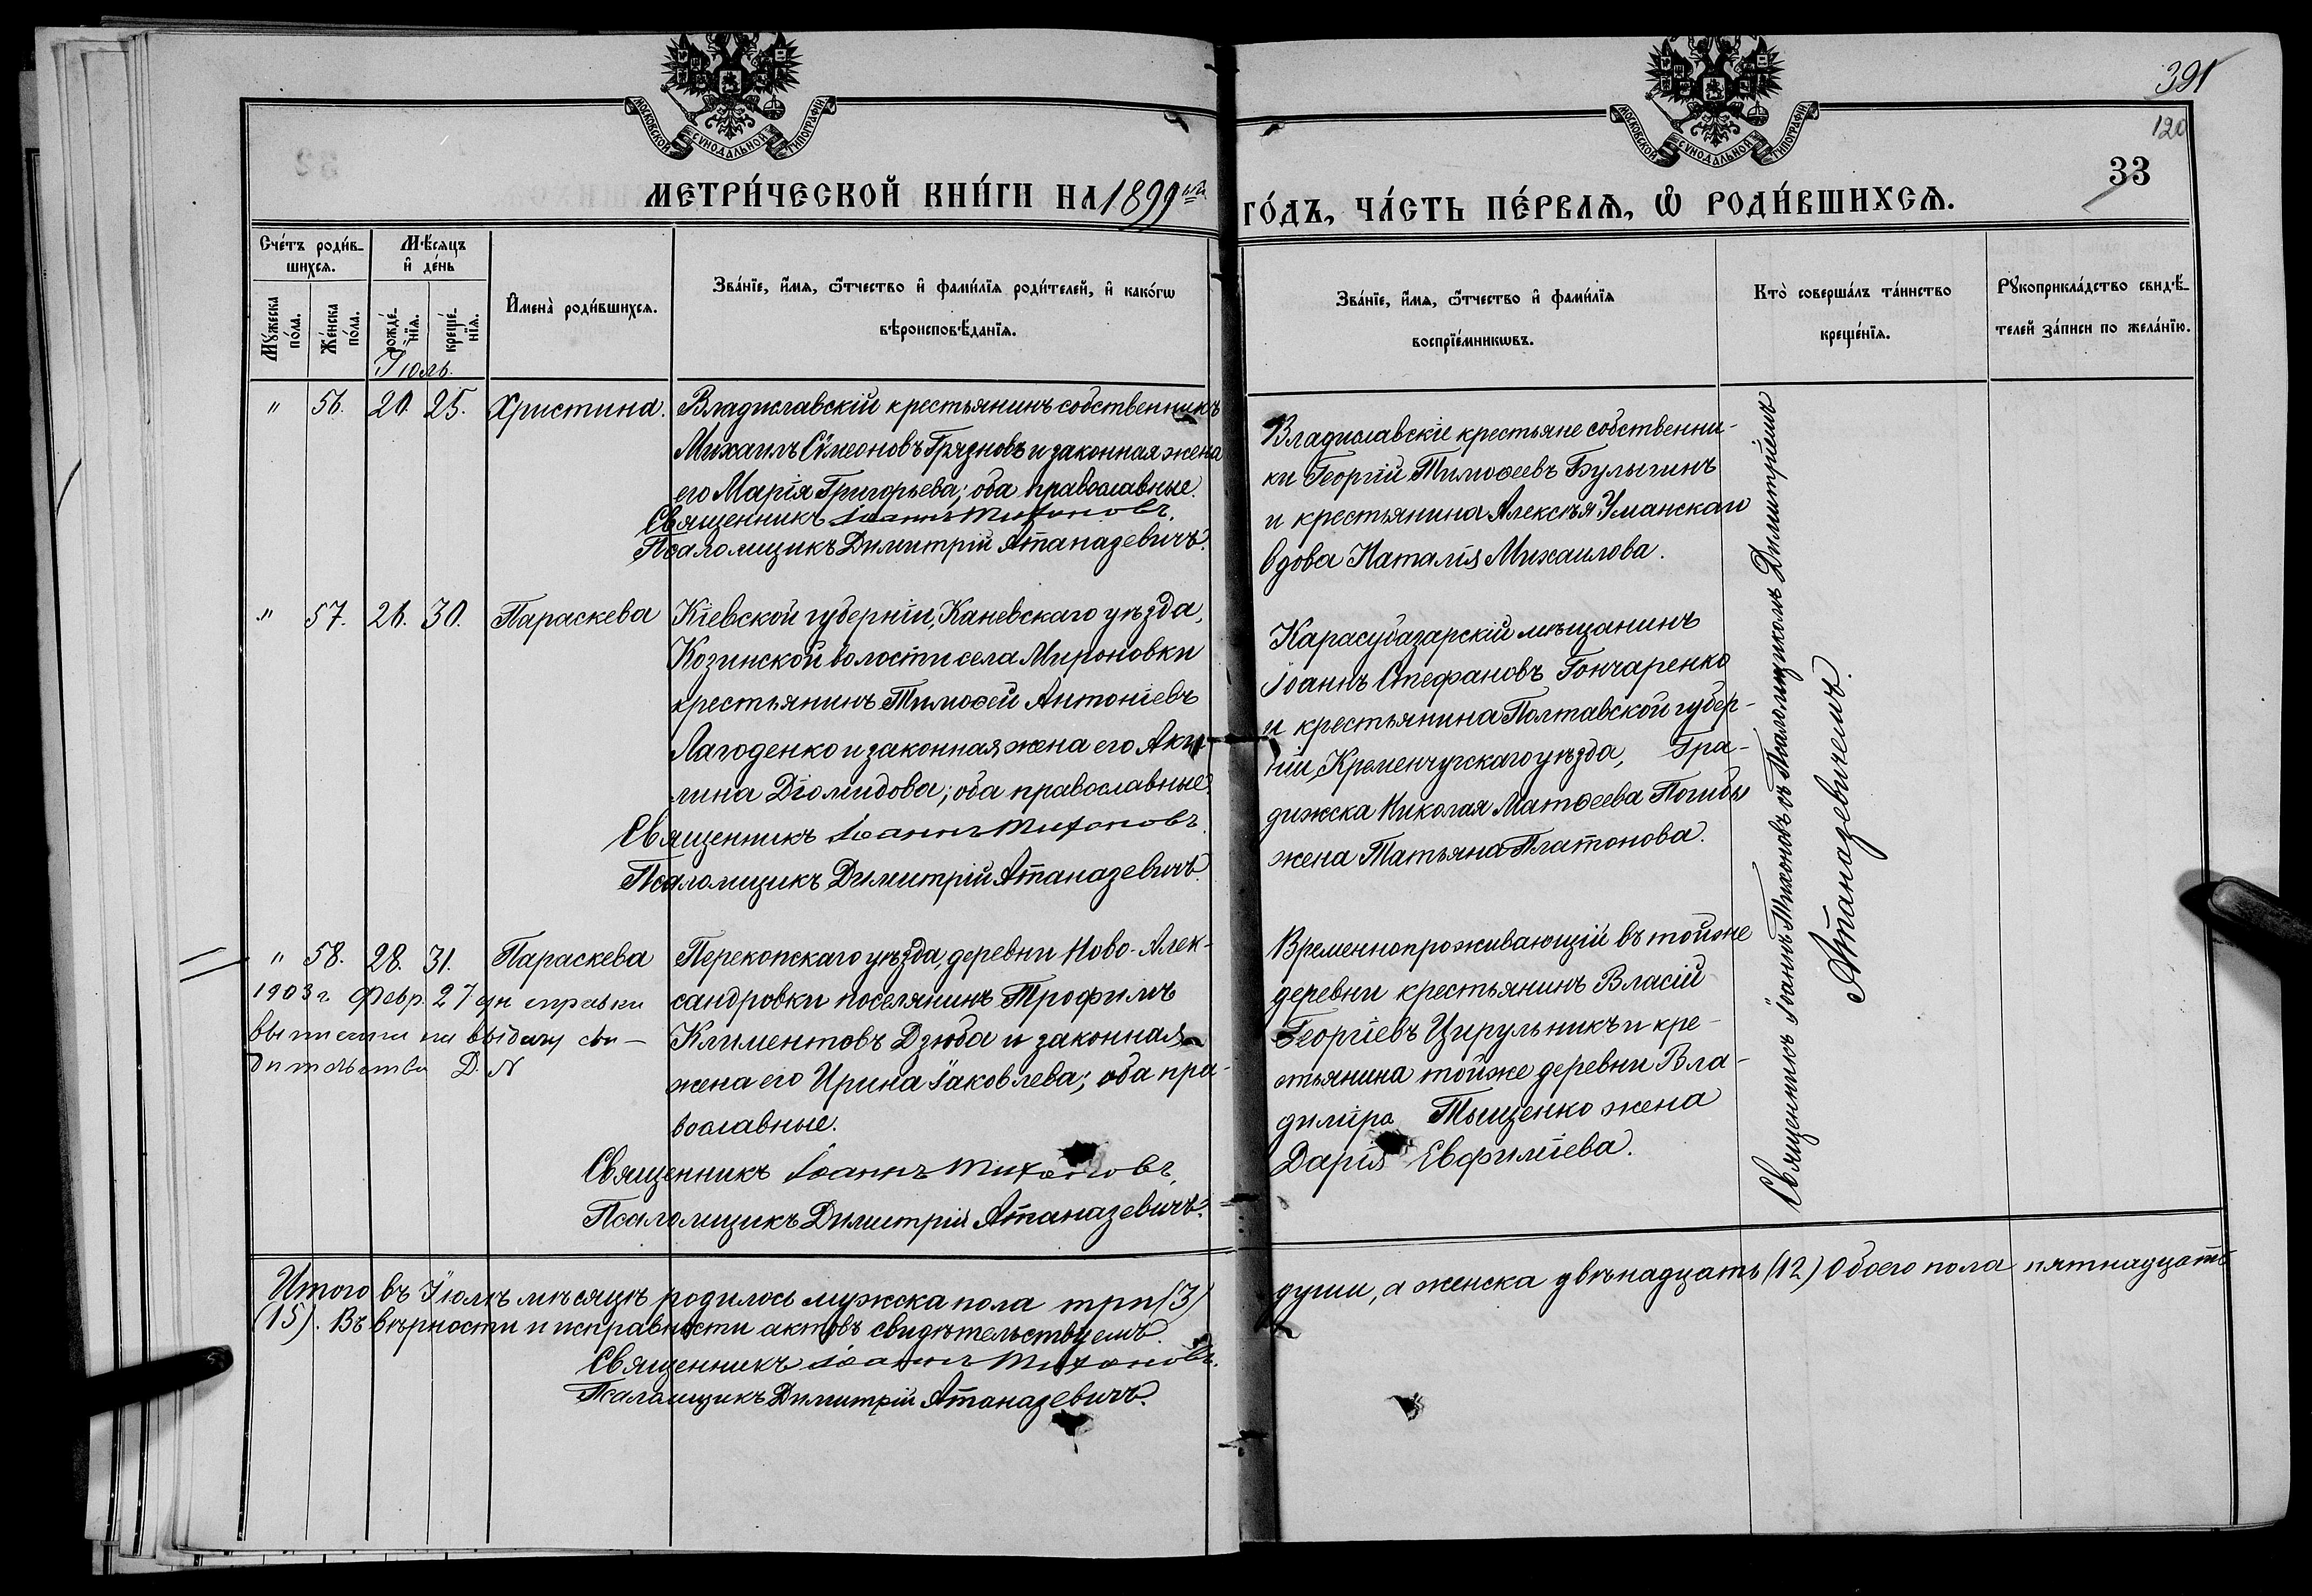 МОСКОВСКОЙ СѴНОДАЛЬНОЙ ТИПОГРАФІИ
МОСКОВСКОЙ СѴНОДАЛЬНОЙ ТИПОГРАФІИ
391
120
33
МЕТРИ́ЧЕСКОЙ КНИ́ГИ НА 1899 ый
ГО́ДЪ, ЧА́СТЬ ПЕ́РВАѦ, Ѽ РОДИ́ВШИХСѦ.
Сче́тъ роди́в-
шихсѧ.
Мѣ́сяцъ
и҆ де́нь
И҆мена̀ роди́вшихсѧ.
Зва́нїе, и҆́мѧ, ѻ҆́тчество и҆ фами́лїѧ роди́телей, и҆ како́гѡ
вѣроисповѣ́данїѧ.
Зва́нїе, и҆́мѧ, ѻ҆́тчество и҆ фами́лїѧ
воспрїе́мникѡвъ.
Кто̀ соверша́лъ та́инство
креще́нїѧ.
Рꙋкоприкла́дство свидѣ́-
телей за́писи по жела́нїю.
Мꙋ́жеска
по́ла.
Же́нска
по́ла.
рожде́-
нїѧ.
креще́-
нїѧ.
Іюль.
" 56. 20. 25. Христина. Владиславскій крестьянинъ собственникъ
Михаилъ Сѵмеоновъ Грязновъ и законная жена
его Марія Григорьева; оба православные.
Священникъ Іоаннъ Тихоновъ.
Псаломщикъ Димитрій Атаназевичъ.
Владиславскіе крестьяне собственни-
ки Георгій Тимоѳеевъ Булыгинъ
и крестьянина Алексѣя Уманскаго
вдова Наталія Михаилова.
" 57. 26. 30. Параскева Кіевской губерніи, Каневскаго уѣзда,
Козинской волости села Мироновки
крестьянинъ Тимоѳей Антоніевъ
Лагоденко и законная жена его Аки-
лина Діомидова; оба православные.
Священникъ Іоаннъ Тихоновъ.
Псаломщикъ Димитрій Атаназевичъ.
Карасубазарскій мѣщанинъ
Іоаннъ Стефановъ Гончаренко
и крестьянина Полтавской губер-
ніи, Кременчугскаго уѣзда, Гра-
дижска Николая Матѳеева Погибы
жена Татьяна Платонова.
" 58. 28. 31. Параскева Перекопскаго уѣзда, деревни Ново-Алек-
сандровки поселянинъ Трофимъ
Климентовъ Дзюба и законная
жена его Ирина Іаковлева; оба пра-
вославные.
Священникъ Іоаннъ Тихоновъ.
Псаломщикъ Димитрій Атаназевичъ.
1903 г. Февр. 27 дн справки
выписаны на выдачу сви-
дительства Д. N
Временнопроживающій въ тойже
деревни крестьянинъ Власій
Георгіевъ Цирульникъ и кре-
стьянина тойже деревни Вла-
диміра Тыщенко жена
Дарія Евфиміева.
Священникъ Іоаннъ Тихоновъ съ Псаломщикомъ Димитріемъ
Атаназевичемъ.
Итого въ Іюлѣ мѣсяцѣ родилось мужска пола три (3)
души, а женска двѣнадцать (12) Обоего пола пятнадцать
(15). Въ вѣрности и исправности актовъ свидѣтельствуемъ.
Священникъ Іоаннъ Тихоновъ.
Псаломщикъ Димитрій Атаназевичъ.